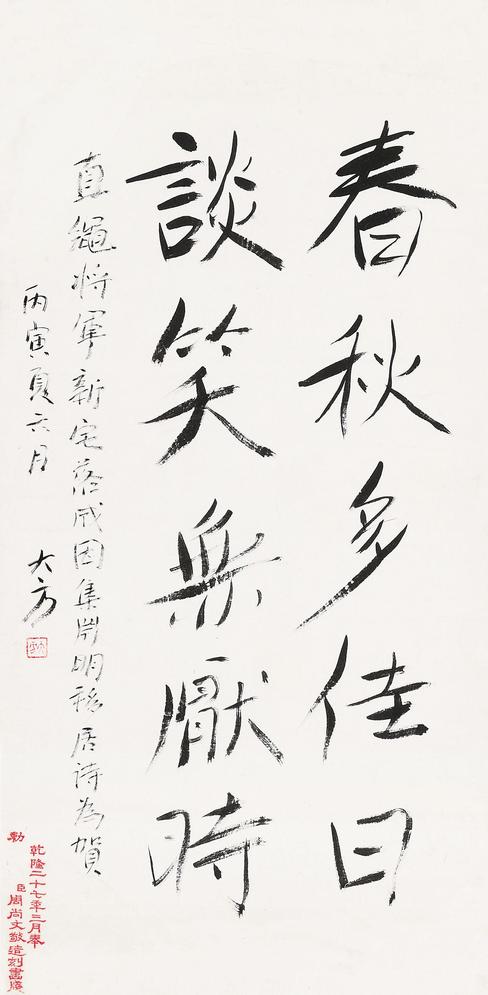 春秋多佳日
談笑無厭時
真繩將軍新宅落成因集陶明移居詩為賀
丙寅夏六月
大方
乾隆二十七年三月奉
勅
臣周尚文敬造刻畫牋